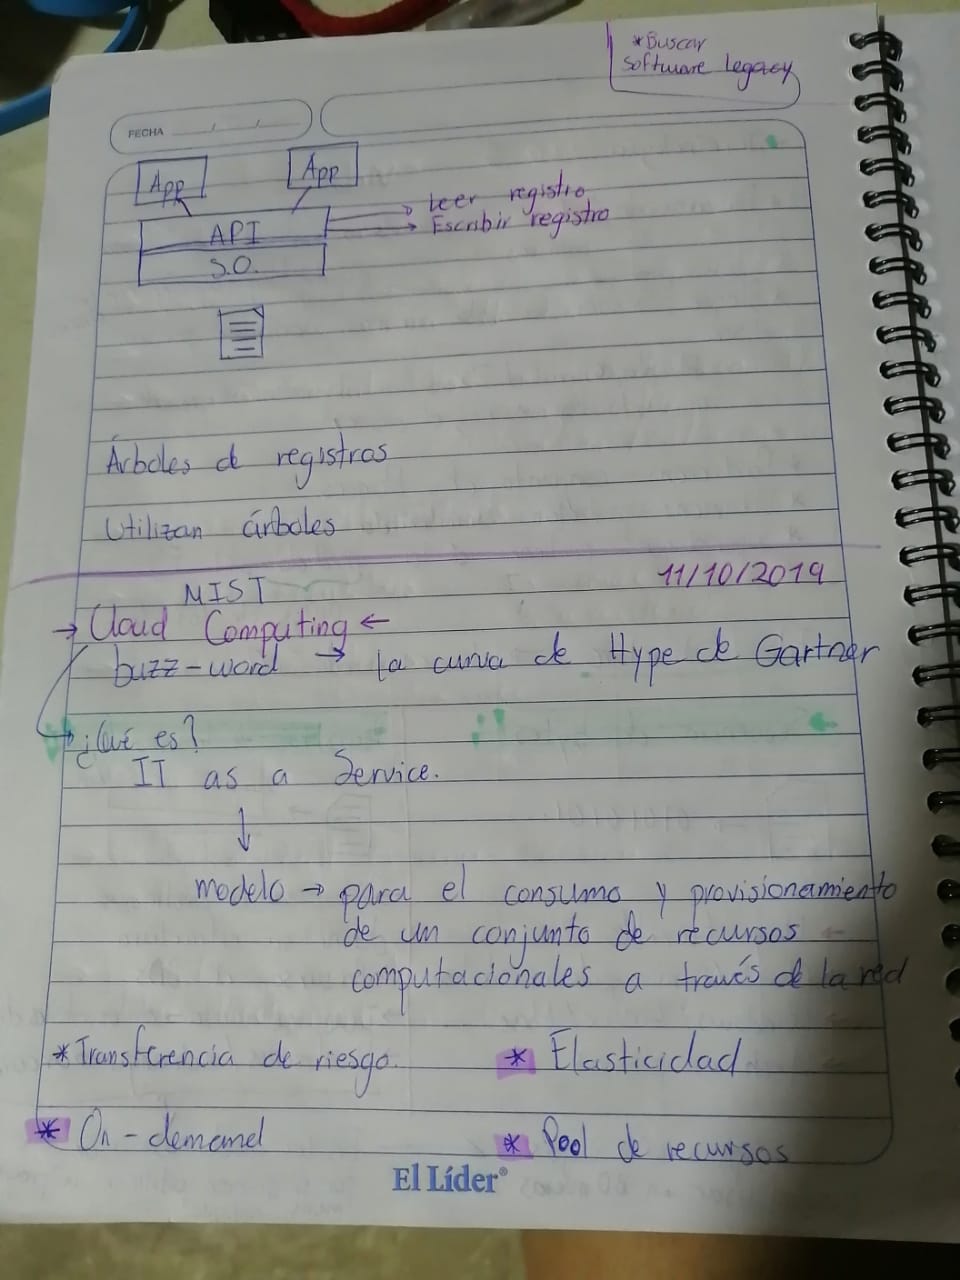 *Buscar
Software Legacy
FECHA
App
App
Leer registro
Escribir registro
API
S.O.
Árboles de registros
Utilizan árboles
11/10/2019
NIST
→ Cloud Computing ←
buzz-word → La curva de Hype de Gartner
¿Qué es?
IT as a Service.
↓
modelo → para el consumo y provisionamiento
de un conjunto de recursos
computacionales a través de la red
*Transferencia de riesgo.
* Elasticidad
* On-demand
* Pool de recursos
El Líder®